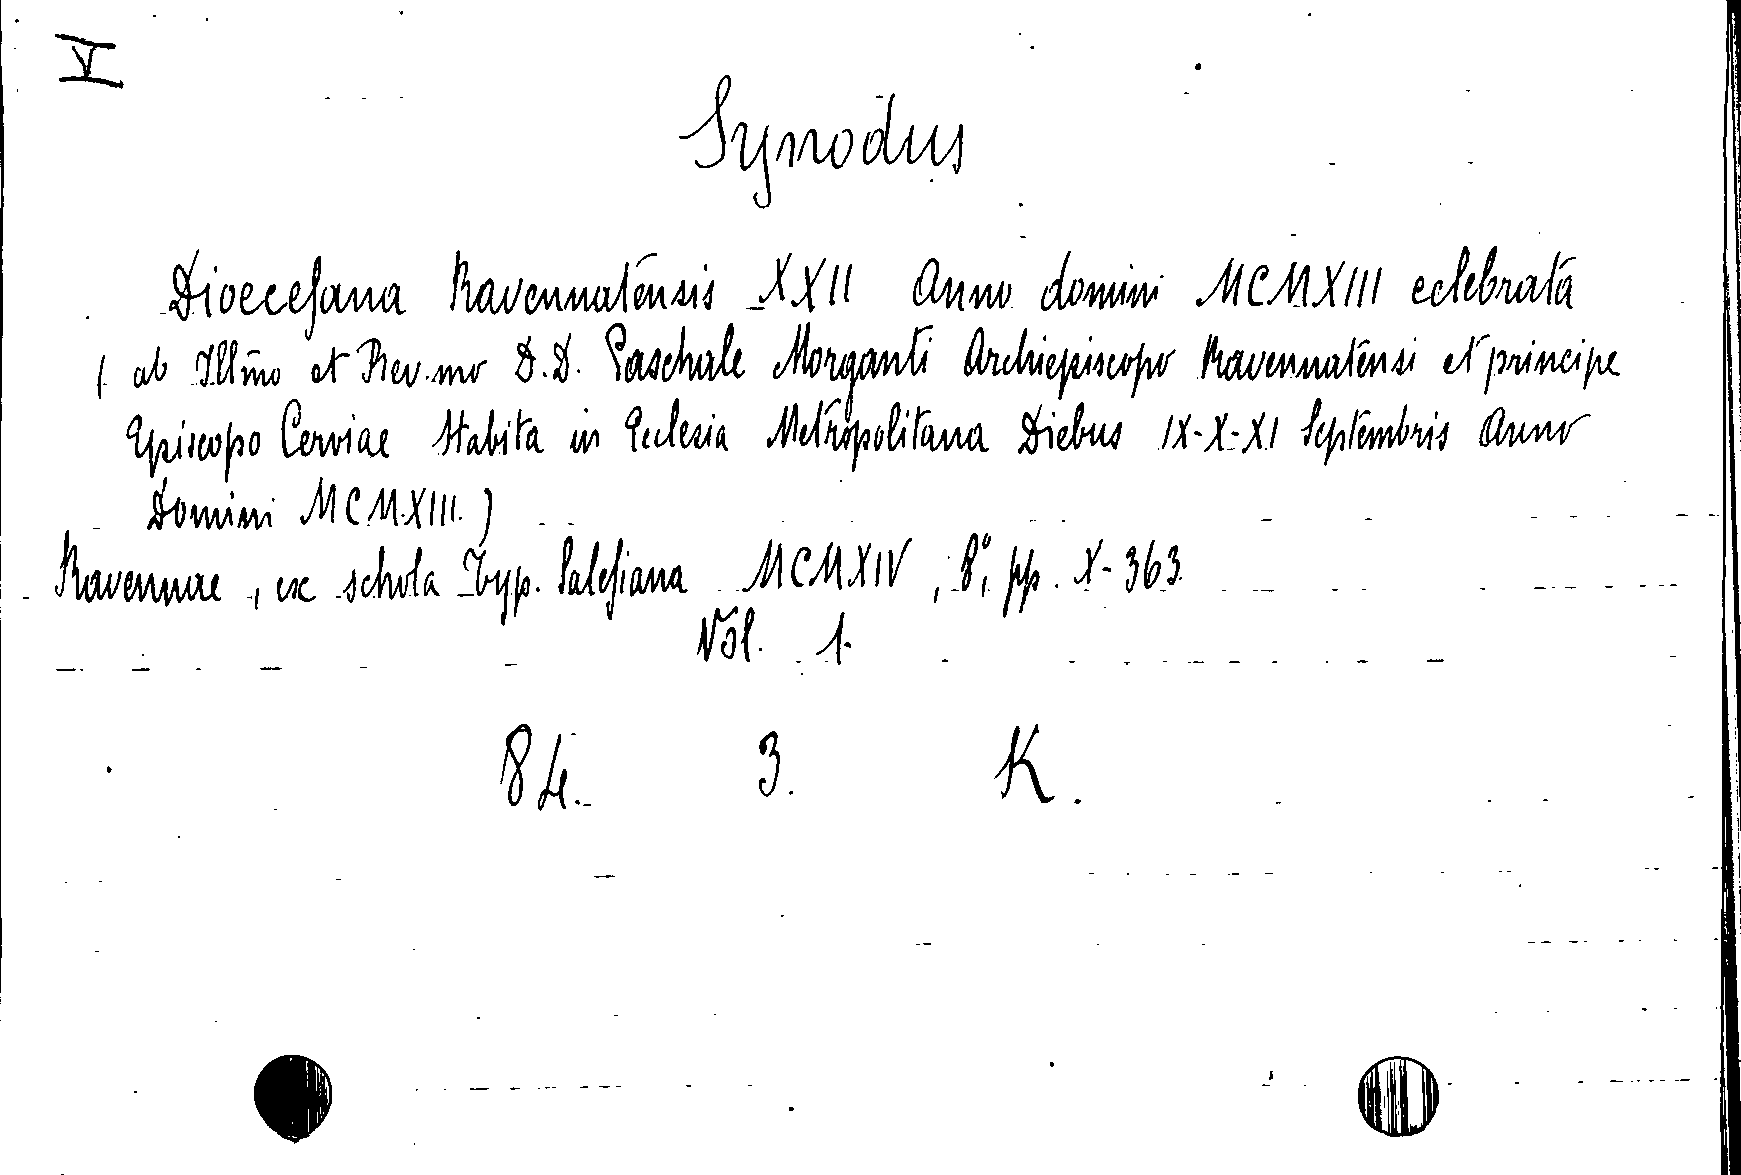 V
Synodus
Dioecesana Ravennatensis XXII Anno domini MCMXIII celebrata
( ab Illmo et Rev.mo D.D. Paschale Morganti Archiepiscopo Ravennatensi et principe
Episcopo Cerviae Habita in Ecclesia Metropolitana Diebus IX-X-XI Septembris Anno
Domini MCMXIII.)
Ravennae, ex schola Typ. Salesiana MCMXIV, 8°, pp. X-363.
Vol. 1.
84. 3. K.